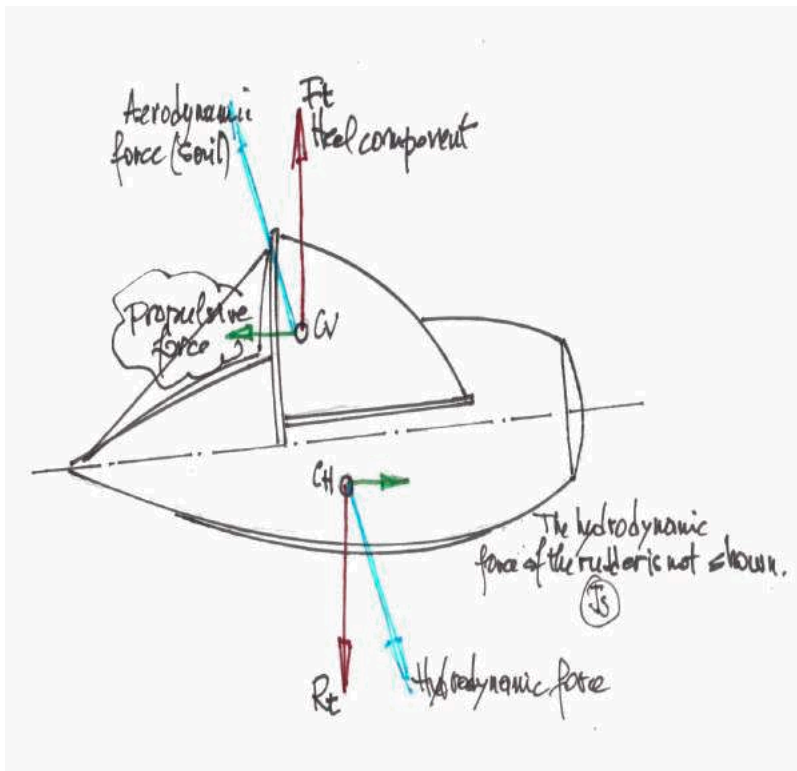 Aerodynamic
force (sail)
Ft
Heel component
Propulsive
force
CV
CH
The hydrodynamic
force of the rudder is not shown.
Js
Hydrodynamic force
Rt